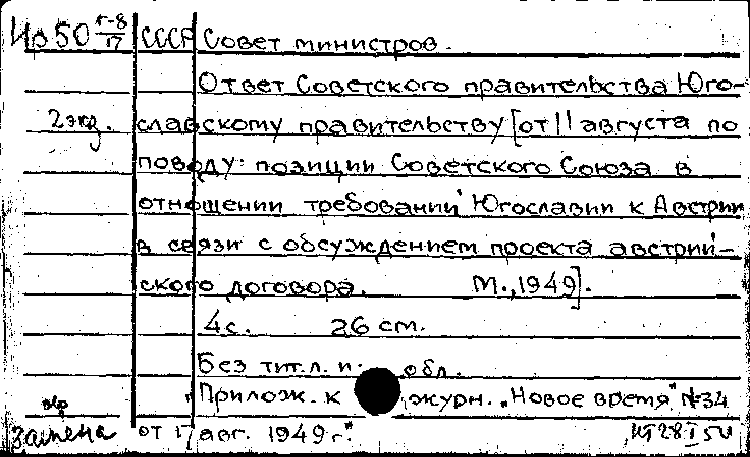 Ио 50 г-8/17 СССР Совет министров.
Ответ Советского правительства Юго-
2 экз. славскому правительству [от 11 августа по
поводу: позиции Советского Союза в
отношении требований Югославии к Австрии
в связи с обсуждением проекта австрий-
ского договора. М., 1949].
4 с. 26 см.
Без тит. л. и обл.
"Прилож. к журн. „Новое время" №34
замена от 17 авг. 1949 г."